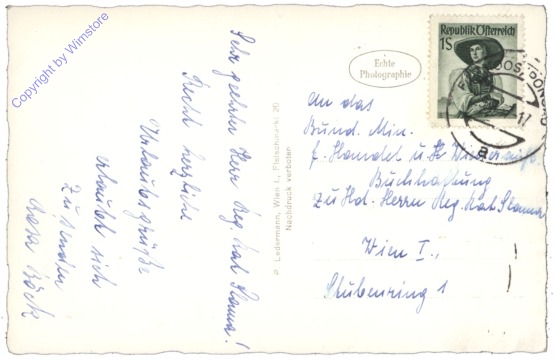 Copyright by Wimstore
Sehr geehrter Herr Reg. Rat Slama!
Recht herzliche
Urlaubsgrüße
erlaubt sich
zu senden
Rosa Böck
P. Ledermann, Wien I., Fleischmarkt 20
Nachdruck verboten
Echte
Photographie
Republik Österreich
1S
17
a
An das
Bund. Min.
f. Handel u.
Buchhaltung
zu Hd. Herrn Reg. Rat Slama
Wien I.,
Stubenring 1